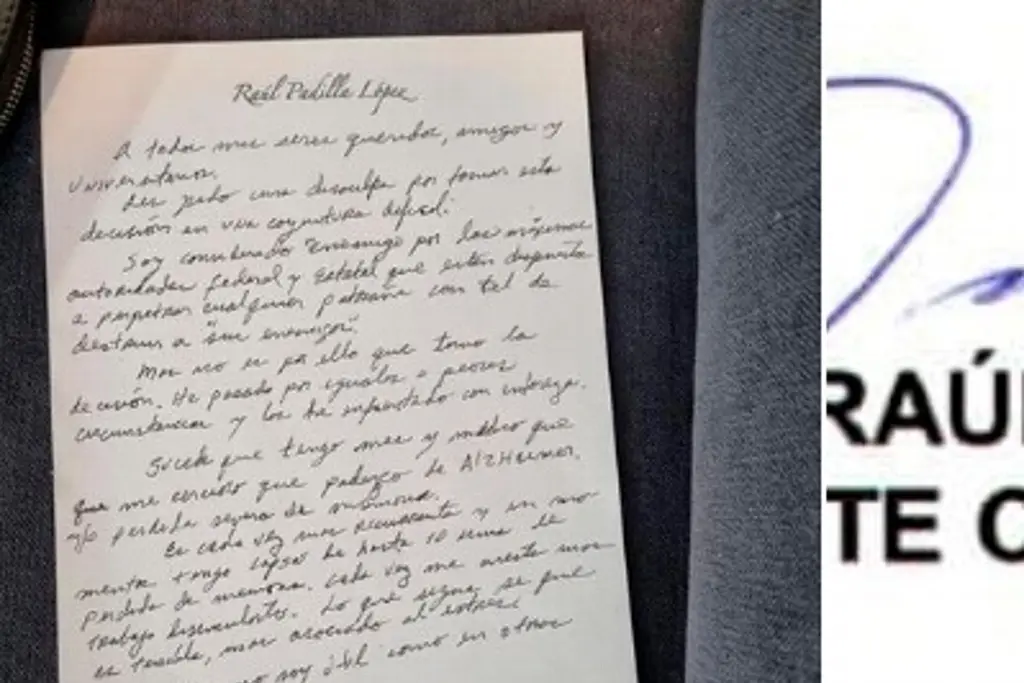 Raúl Padilla López
A todos mis seres queridos, amigos y
universitarios.
Les pido una disculpa por tomar esta
decisión en una coyuntura difícil.
Soy considerado "enemigo" por las máximas
autoridades federal y estatal que están dispuestas
a perpetrar cualquier patraña con tal de
destruir a "sus enemigos".
Mas no es por ello que tomo la
decisión. He pasado por iguales o peores
circunstancias y las he enfrentado con entereza.
Sucede que tengo mes y medio que
que me cercioro que padezco de AlzHeimer.
y/o perdida severa de memoria.
Es cada vez mas recurrente y en mo
mentos tengo lapsos de hasta 10 de
perdida de memoria. cada vez me cuesta mas
trabajo Lo que sigue, se que
es terrible, mas asociado al estres.
no soy útil como en otros
RAÚ
TE C